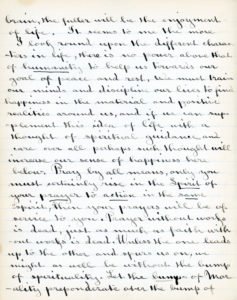 brain, the fuller will be the enjoyment
of life. It seems to me the more
I look round upon the different charac-
ters in life, there is no power above that
of humanity to help us towards our
goal of peace and rest, we must train
our minds and discipline our lives to find
happiness in the material and positive
realities around us, and if we can sup-
plement this idea of life with a
thought of spiritual guidance and
care over all perhaps such thought will
increase our sense of happiness here
below. Pray by all means, only you
must certainly rise in the Spirit of
your prayer to action in the same
Spirit, your prayers will be of
service to you. Prayer without works
is dead, just as much as faith with-
out works is dead. Unless the one leads
up to the other and spurs us on, we
might as well be without the bump
of spirituality. Let the bump of Mor-
ality preponderate over the bump of